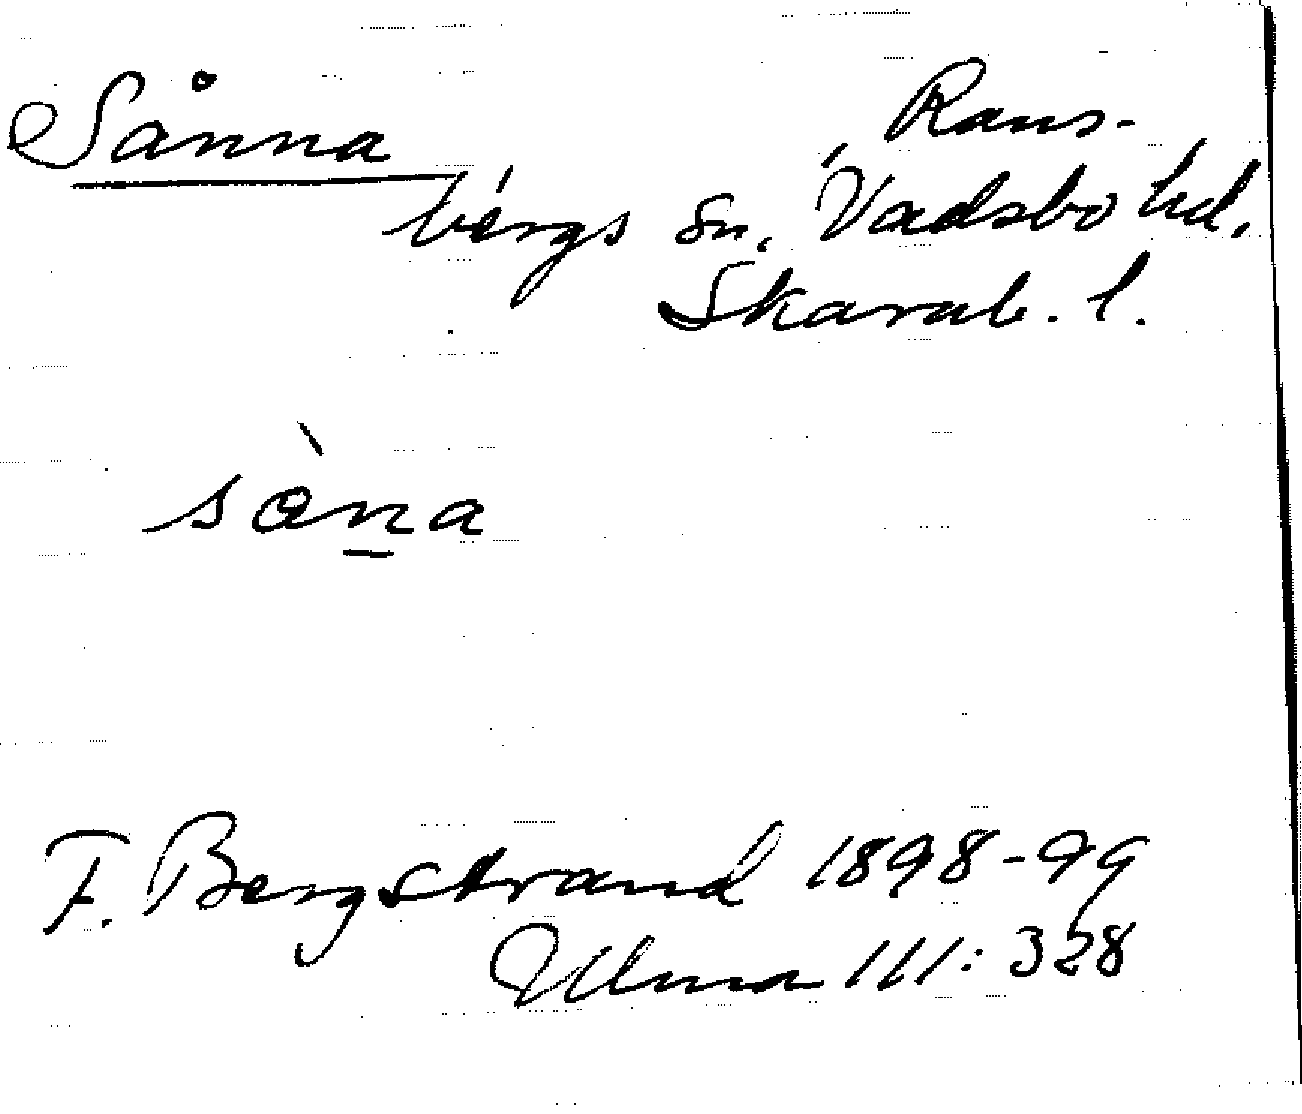 Sånna
Rans-
bergs sn, Vadsbo hd,
Skarab. l.
sàṉa
F. Bergstrand 1898-99
Ulma 111: 328